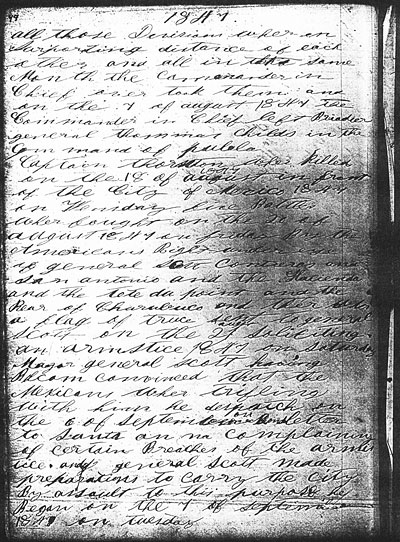 1847
all those Devisions wher on
Surporting distance of each
other and all in the same
Month the Commander in
Chief over took them and
on the 7 of august 1847 the
Commander in Chief left
general thommas Childs in the
Command of puebla
Captain thornton wher killed
on the 18 of august in front
of the City of Mexico 1847
on Wensday five Battles
wher fought on the 20 of
august 1847 on friday By the
Americans
of general Scott
San antonio and the
and the tete da pont
Rear of Churubusco and ther
a flag of truce general
Scott on the
an armstice 1847 on Saturday
Magor general Scott having
Becom convinced that the
Mexicans wher trifling
with him he dispatch on
the 6 of September letter
to Santa an na complaining
of certain Breathes of the armis
tice and general Scott made
preparations to carry the City
By assault to this purpose he
Began on the 7 of September
1847 on tuesday